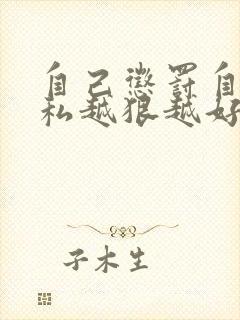 自己惩罚自
私越狠越好
子木生